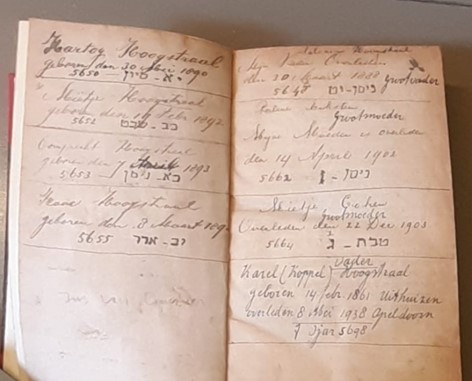 Hartog Hoogstraal
geboren den 30 Mei 1890
5650 יא - סיון
Mietje Hoogstraal
geboren den 19 Febr 1892
5652 כב - שבט
Hoogstraal
geboren den 7 April 1893
5653 כא - ניסן
Hoogstraal
geboren den 8 Maart 189
5655 יב - אדר
Hoogstraal
Vader Overleden
den 30 Maart 1888 grootvader
5648 ניסן - יט
Grootmoeder
Mijne Moeder is overleden
den 14 April 1902
5662 ניסן - ז
Mietje Cohen
Grootmoeder
Overleden den 22 Dec 1903
5664 טבת - ג
Vader
Karel (Koppel) Hoogstraal
geboren 14 febr. 1861 Uithuizen
overleden 8 Mei 1938 Apeldoorn
7 Ijar 5698